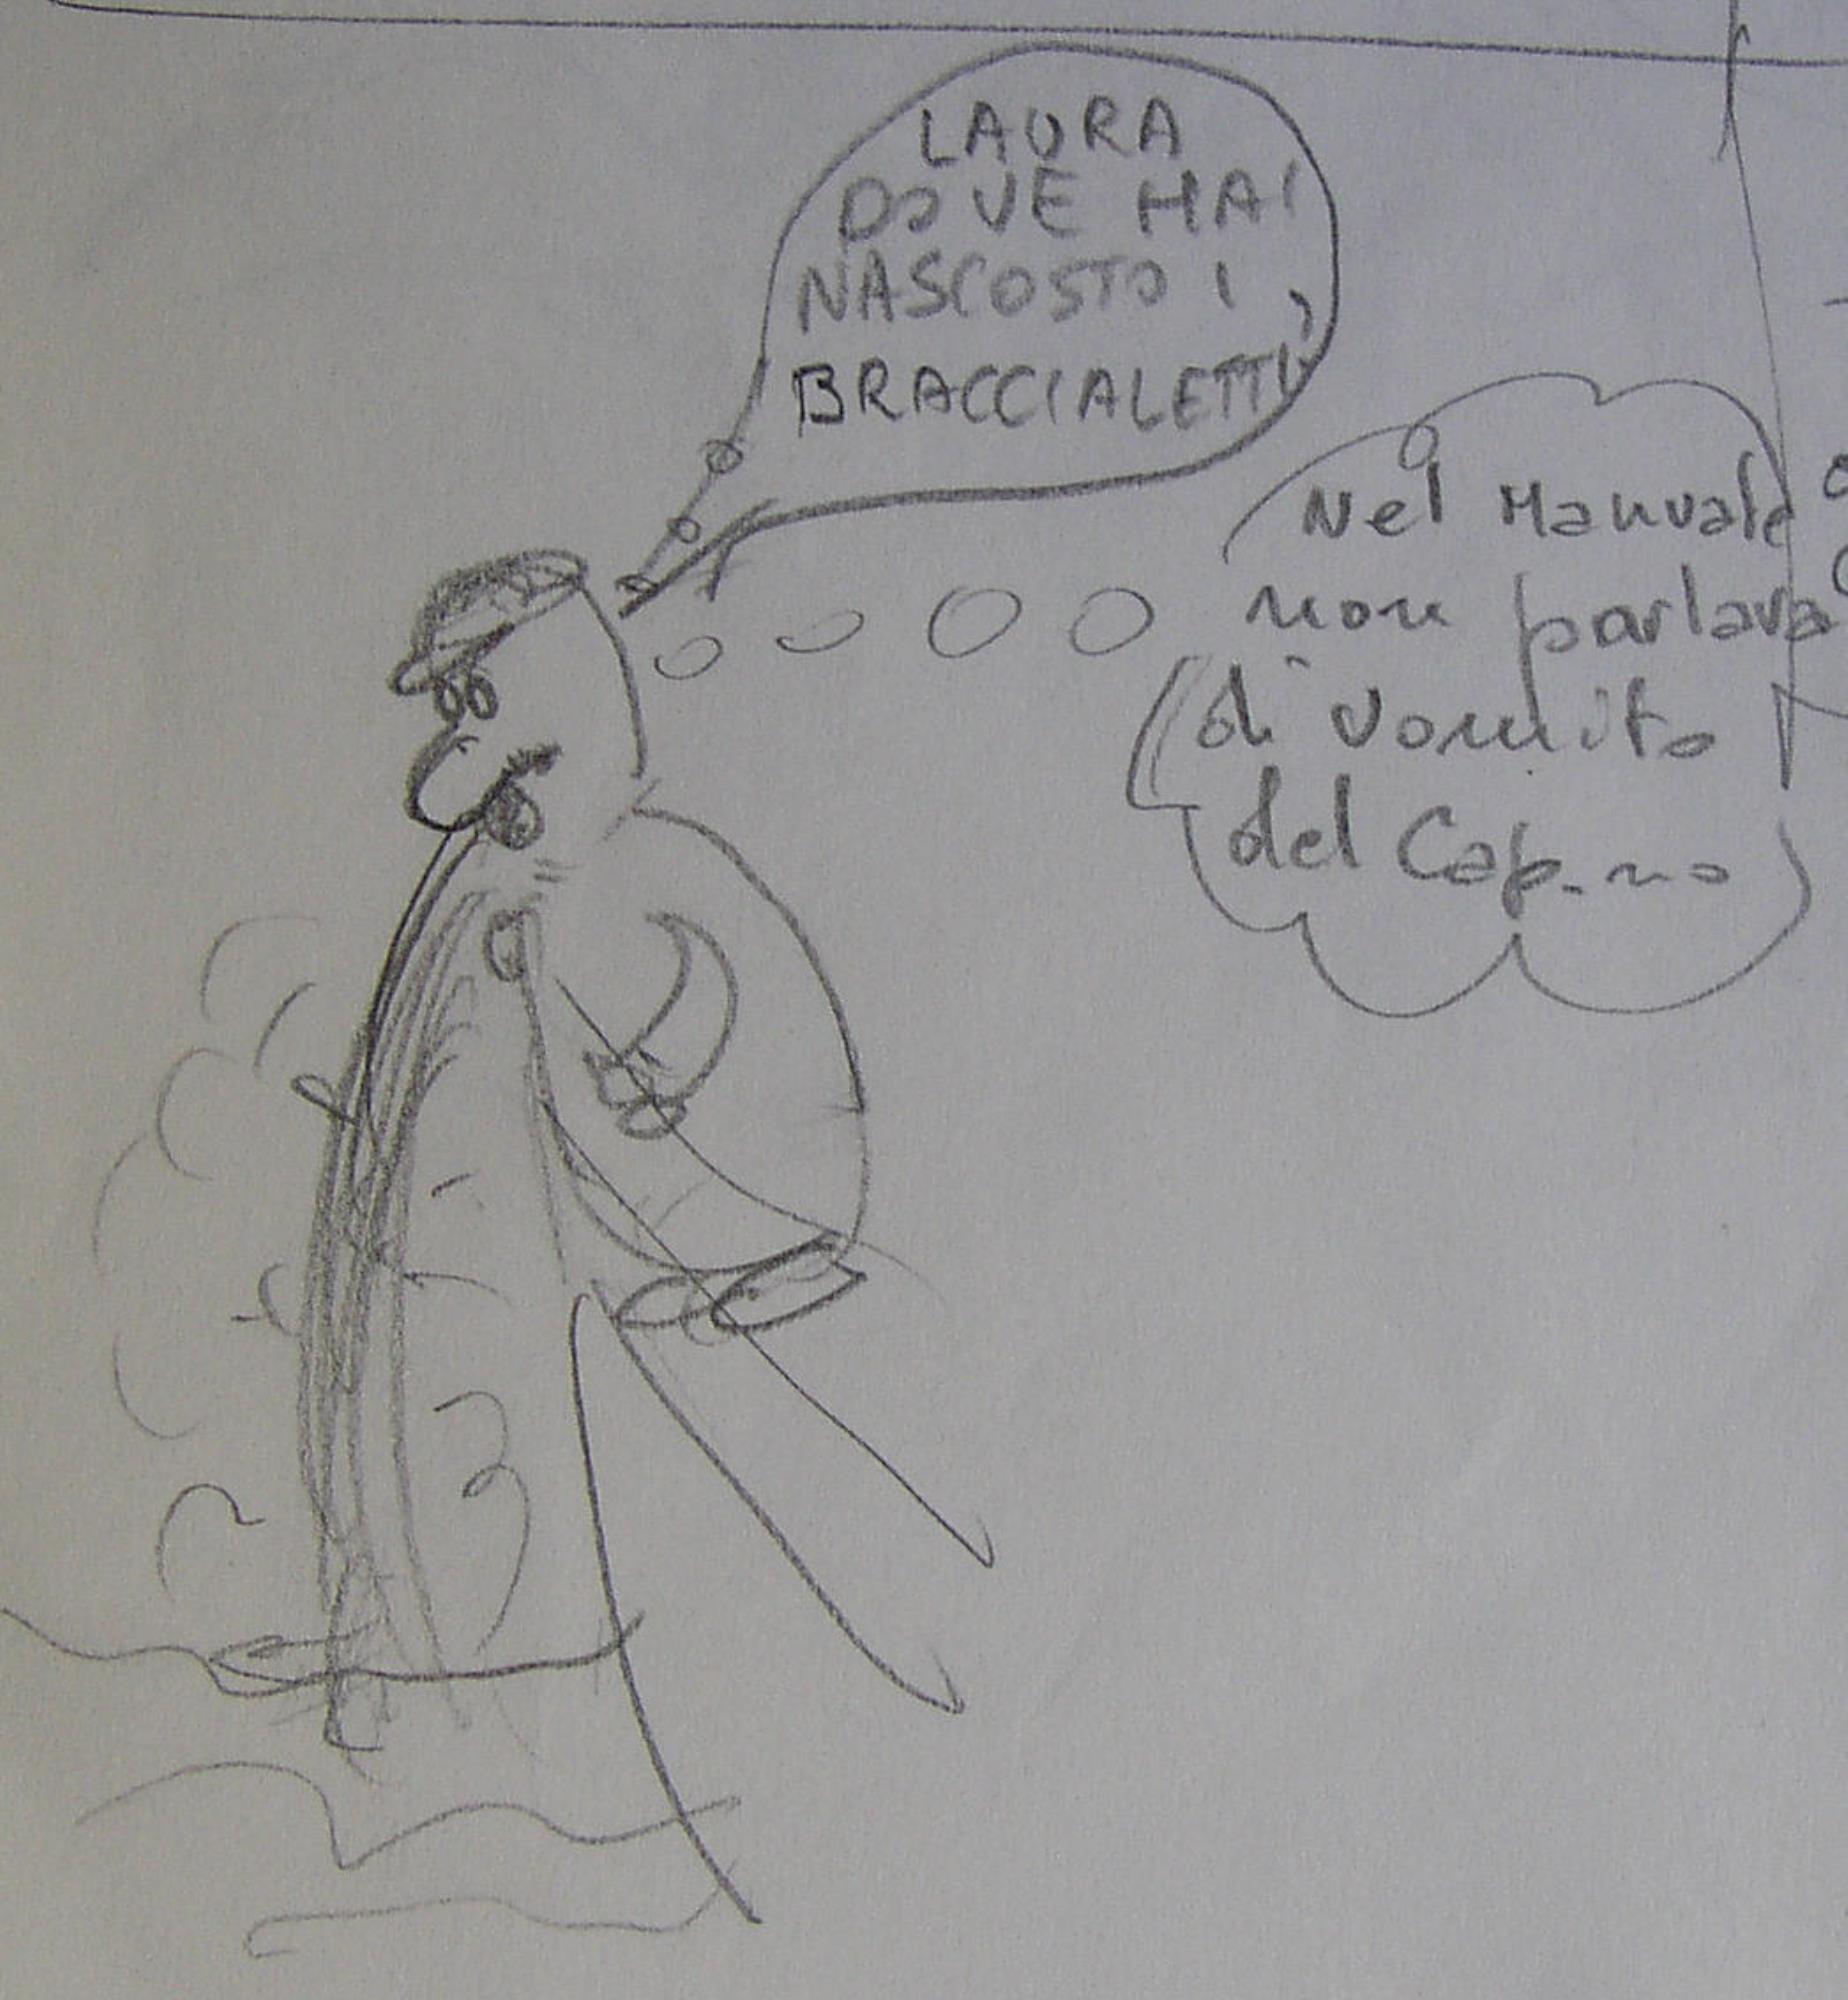 LAURA
DOVE HAI
NASCOSTO I
BRACCIALETTI,
Nel Manuale
non parlava
di vomito
del Cap.no